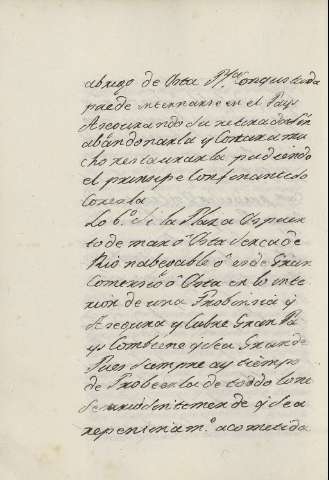 abrigo de esta Pza Conquistada
puede internarse en el Pays
Asegurando su retirada sin
abandonarla y Costara mu
cho restaurarla pudiendo
el principe Con
Con ella
Lo 6.º si la Plaza es puer
to de mar ó esta serca de
Rio nabegable ó es de Gran
Comersio ó esta en lo inte
rior de una Probinsia y
Asegura y Cubre Gran Pa
ys Combiene q sea Grande
Pues siempre ay tiempo
de Probeerla de toddo lo ne
sesario sin temer de q sea
repentinam.e acometida